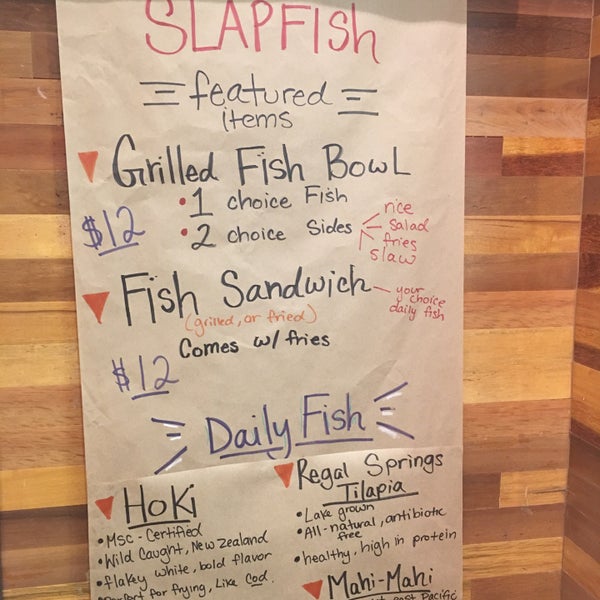 SLAPFISh
featured
items
Grilled Fish Bowl
$12
• 1 choice Fish
• 2 choice Sides
rice
salad
fries
slaw
Fish Sandwich
your
choice
daily fish
(grilled, or fried)
Comes w/ fries
$12
Daily Fish
Hoki
• MSC - Certified
• Wild Caught, New Zealand
• flakey white, bold flavor
• Perfect for frying, Like Cod.
Regal Springs
Tilapia
• Lake grown
• All-natural, antibiotic
free
• healthy, high in protein
Mahi-Mahi
east Pacific